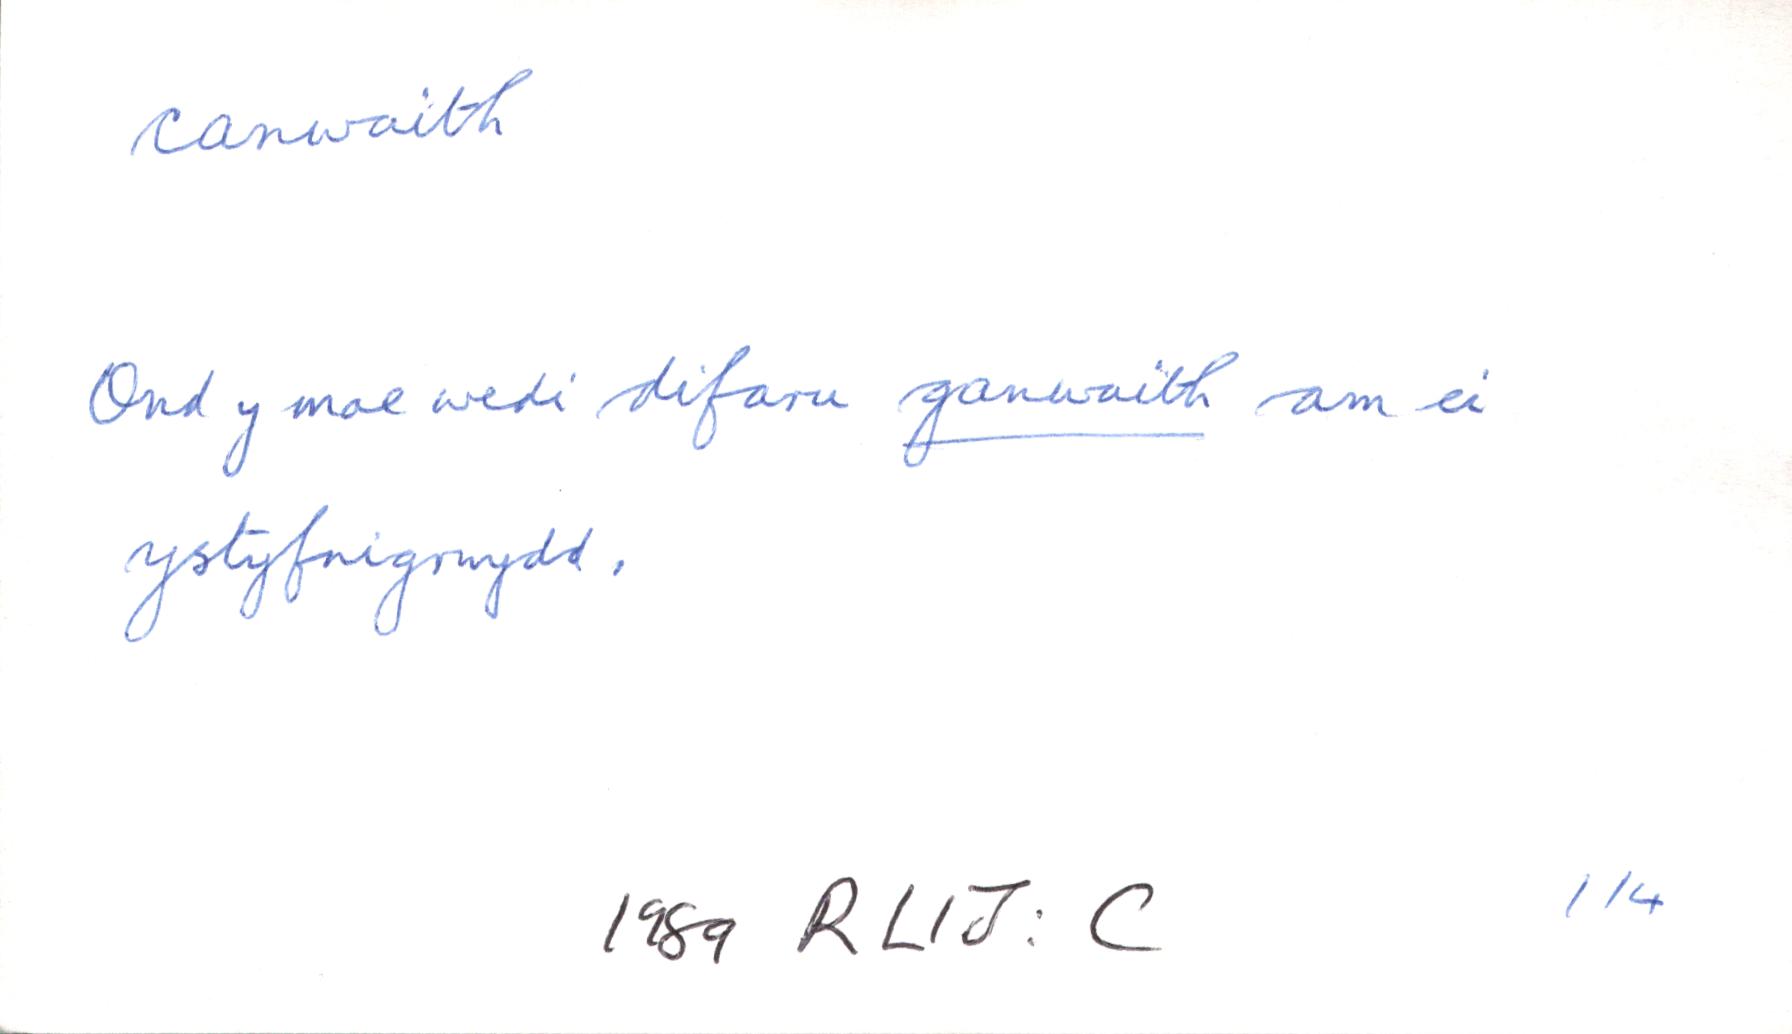 canwaith
Ond y mae wedi difaru ganwaith am ei
ystyfnigrwydd.
1989 RLlJ: C
114